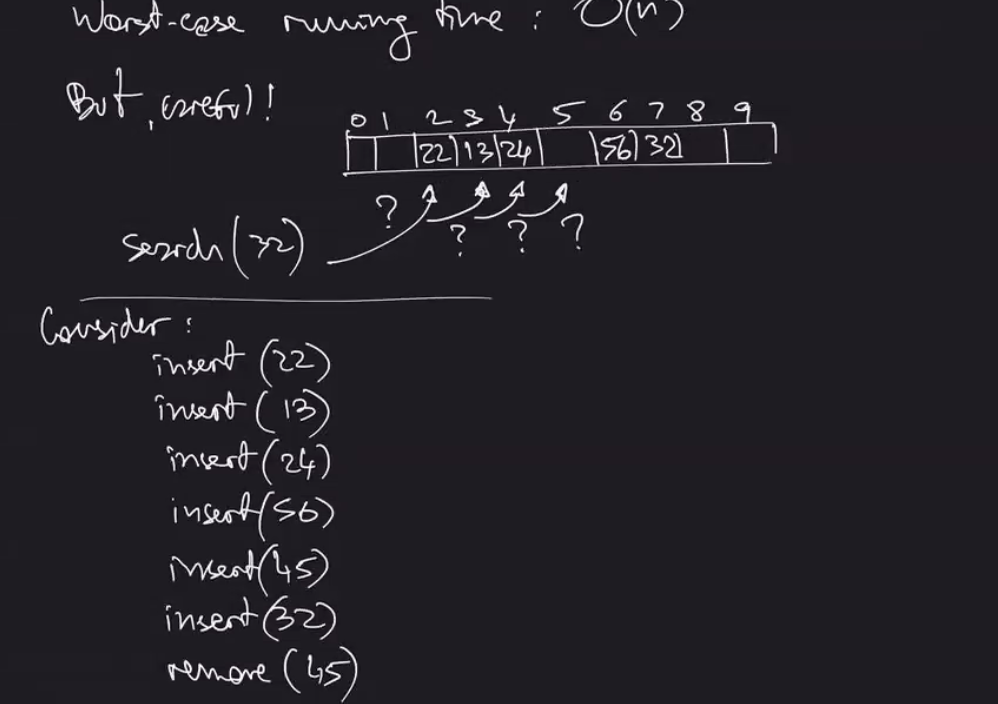 Worst-case running time : O(n)
But, careful!
0 1 2 3 4 5 6 7 8 9
22 13 24 56 32
? ? ? ?
search(32)
Consider :
insert (22)
insert (13)
insert (24)
insert (56)
insert (45)
insert (32)
remove (45)